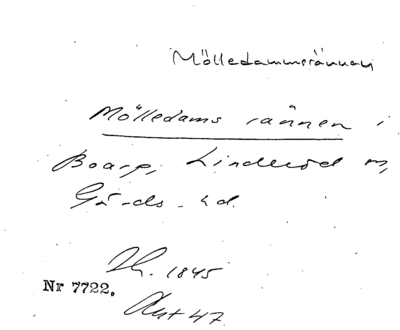 Mölledammsrännan
Mölledams rännen i
Boarp, Linderöd sn,
Gärds hd.
Sk. 1845
Nr 7722.
Akt 47